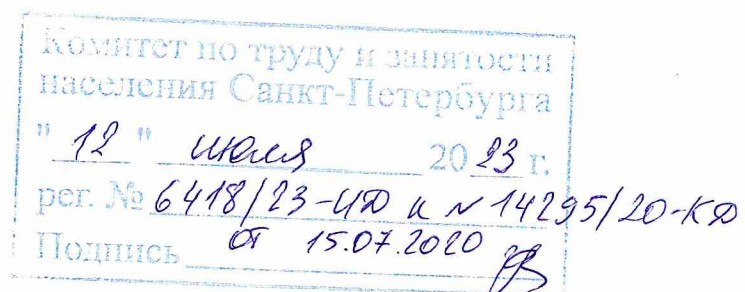 Комитет по труду и занятости
населения Санкт-Петербурга
" 12 " июля 20 23 г.
рег. № 6418/23-ИД к № 14295/20-КД
Подпись от 15.07.2020